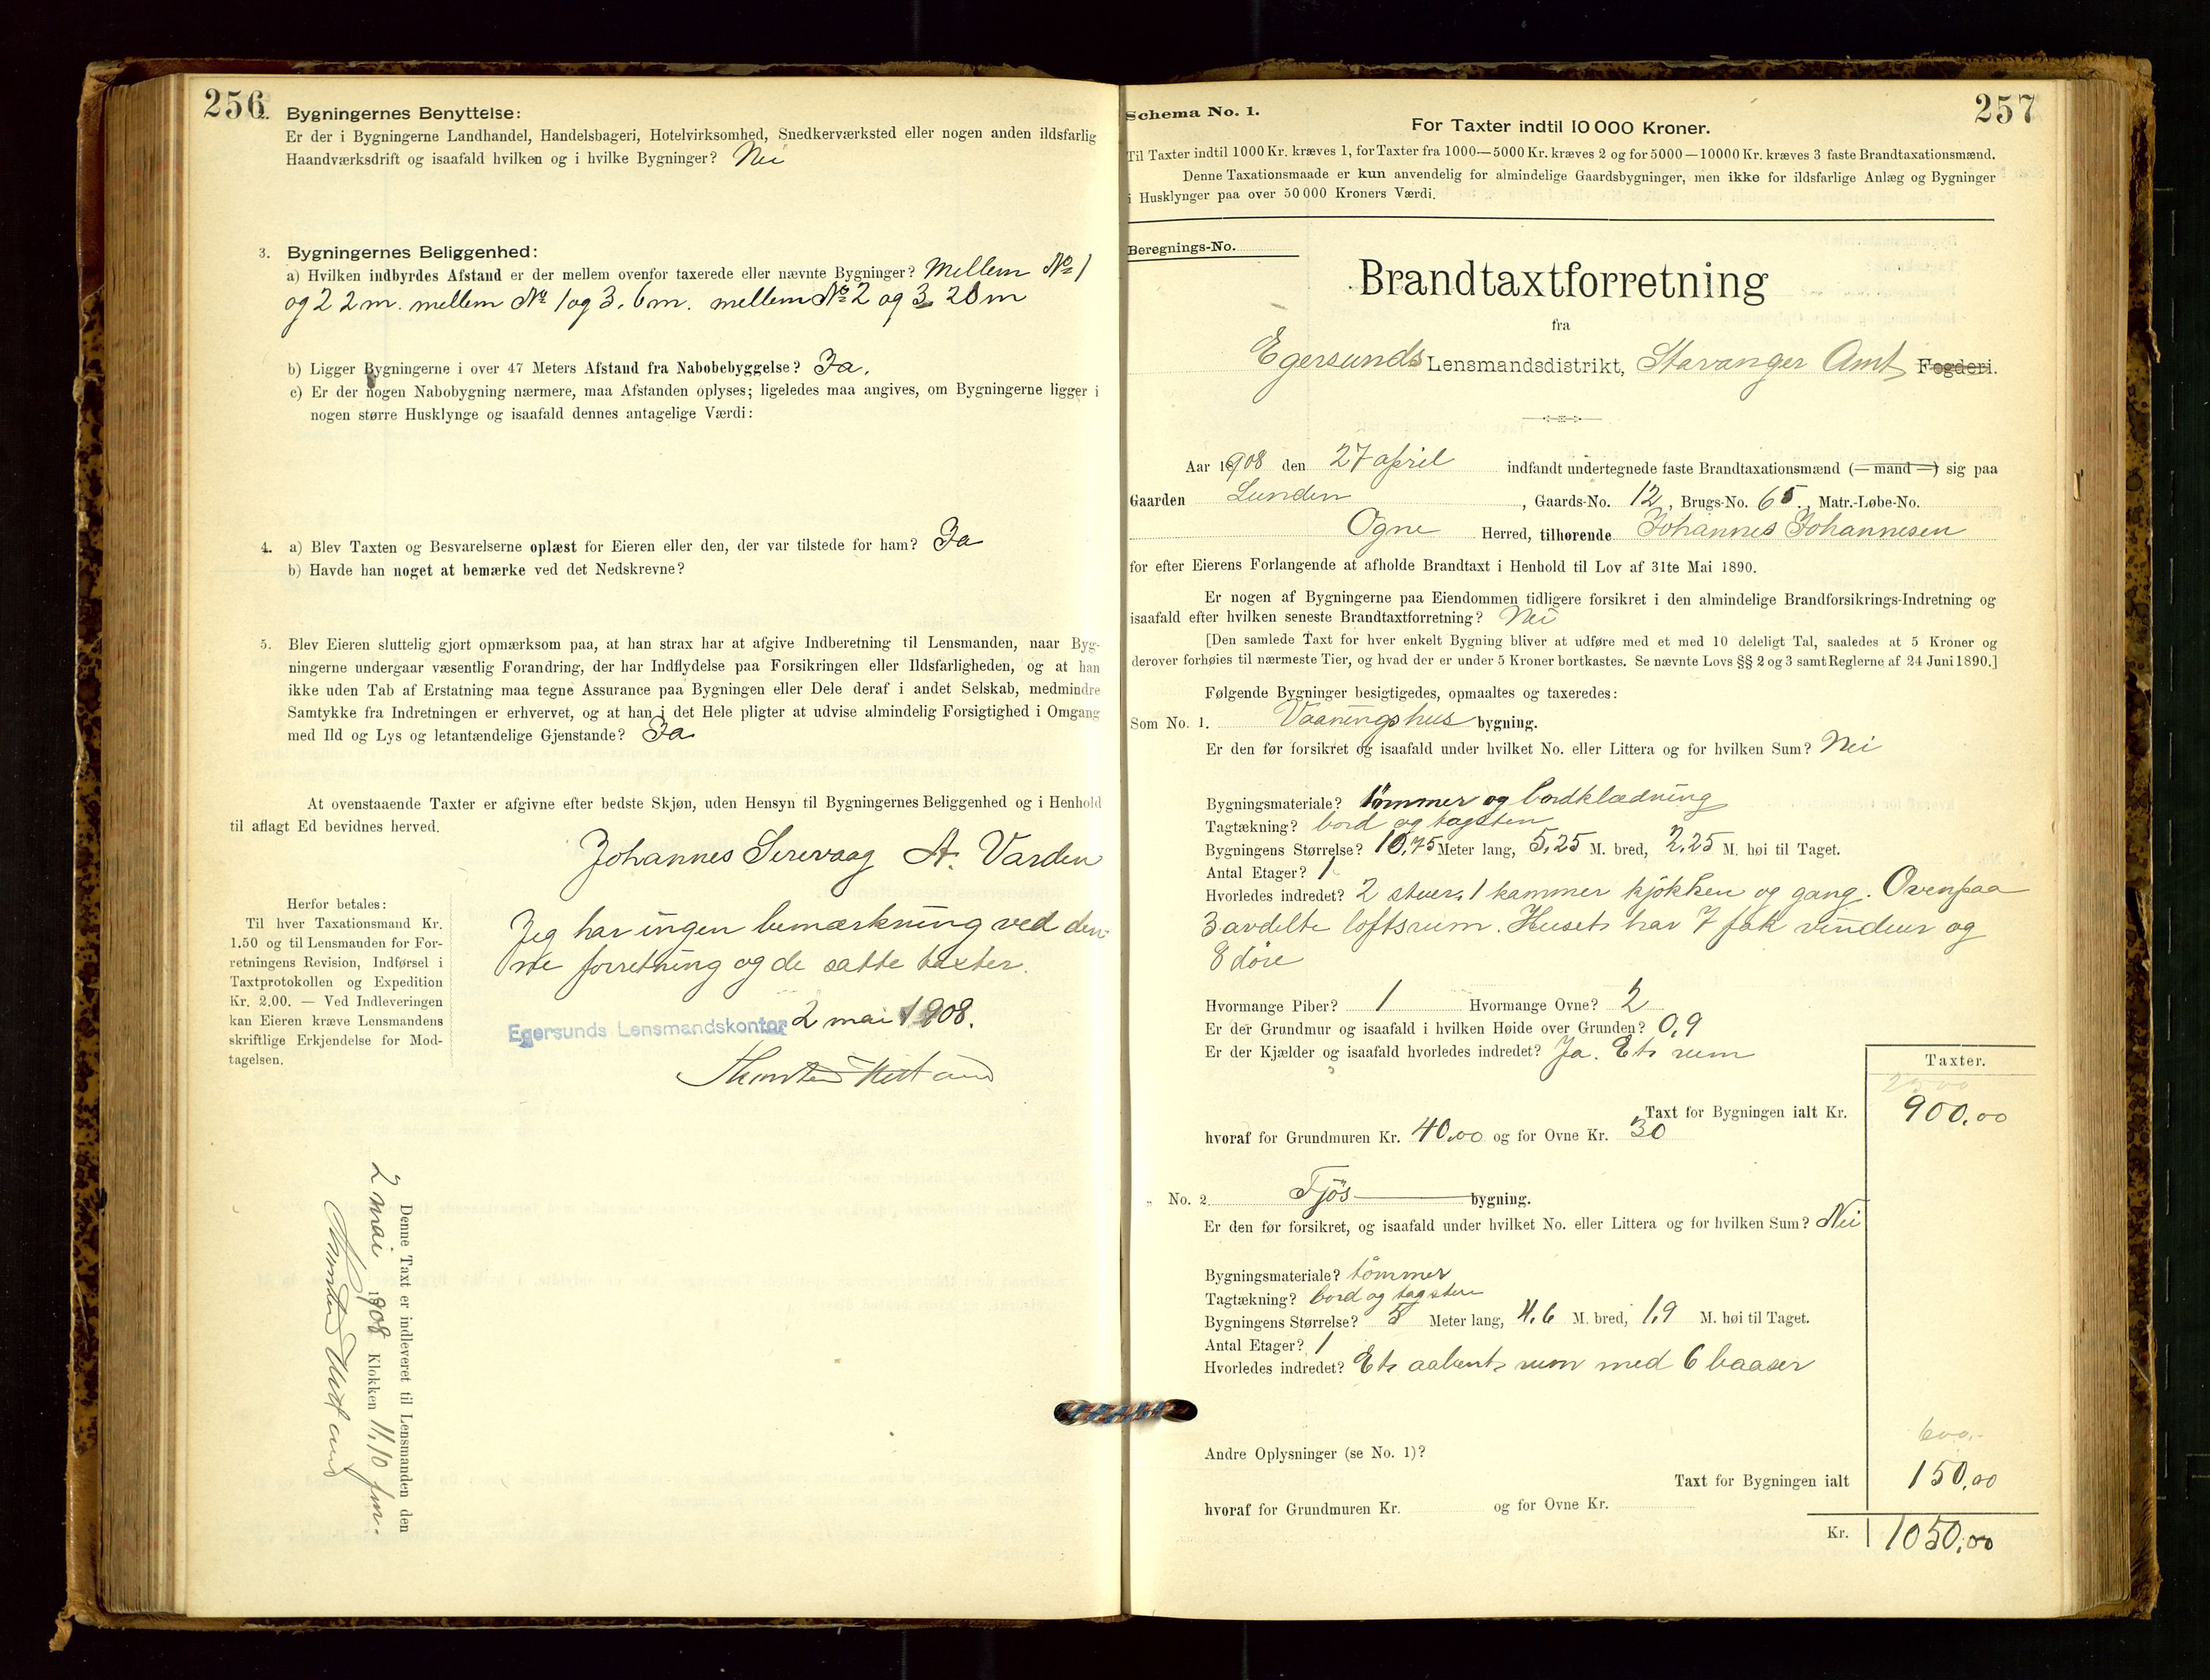 256
2. Bygningernes Benyttelse:
Er der i Bygningerne Landhandel, Handelsbageri, Hotelvirksomhed, Snedkerværksted eller nogen anden ildsfarlig
Haandværksdrift og isaafald hvilken og i hvilke Bygninger? Nei
3. Bygningernes Beliggenhed:
a) Hvilken indbyrdes Afstand er der mellem ovenfor taxerede eller nævnte Bygninger? Mellem No 1
og 2 2 m. mellem No 1 og 3. 6 m. mellem No 2 og 3 20 m
b) Ligger Bygningerne i over 47 Meters Afstand fra Nabobebyggelse? Ja.
c) Er der nogen Nabobygning nærmere, maa Afstanden oplyses; ligeledes maa angives, om Bygningerne ligger i
nogen større Husklynge og isaafald dennes antagelige Værdi:
4. a) Blev Taxten og Besvarelserne oplæst for Eieren eller den, der var tilstede for ham? Ja
b) Havde han noget at bemærke ved det Nedskrevne?
5. Blev Eieren sluttelig gjort opmærksom paa, at han strax har at afgive Indberetning til Lensmanden, naar Byg-
ningerne undergaar væsentlig Forandring, der har Indflydelse paa Forsikringen eller Ildsfarligheden, og at han
ikke uden Tab af Erstatning maa tegne Assurance paa Bygningen eller Dele deraf i andet Selskab, medmindre
Samtykke fra Indretningen er erhvervet, og at han i det Hele pligter at udvise almindelig Forsigtighed i Omgang
med Ild og Lys og letantændelige Gjenstande? Ja
At ovenstaaende Taxter er afgivne efter bedste Skjøn, uden Hensyn til Bygningernes Beliggenhed og i Henhold
til aflagt Ed bevidnes herved.
Johannes Sirevaag A. Varden
Herfor betales:
Til hver Taxationsmand Kr.
1.50 og til Lensmanden for For-
retningens Revision, Indførsel i
Taxtprotokollen og Expedition
Kr. 2.00. — Ved Indleveringen
kan Eieren kræve Lensmandens
skriftlige Erkjendelse for Mod-
tagelsen.
Jeg har ingen bemærkning ved den-
ne forretning og de satte taxter.
Egersunds Lensmandskontor 2 mai 1908.
Denne Taxt er indleveret til Lensmanden den
2 mai 1908 Klokken 11,10 fm.
257
Schema No. 1.
For Taxter indtil 10 000 Kroner.
Til Taxter indtil 1000 Kr. kræves 1, for Taxter fra 1000—5000 Kr. kræves 2 og for 5000—10000 Kr. kræves 3 faste Brandtaxationsmænd.
Denne Taxationsmaade er kun anvendelig for almindelige Gaardsbygninger, men ikke for ildsfarlige Anlæg og Bygninger
i Husklynger paa over 50 000 Kroners Værdi.
Beregnings-No.
Brandtaxtforretning
fra
Egersunds Lensmandsdistrikt, Stavanger Amt Fogderi.
Aar 1908 den 27 april indfandt undertegnede faste Brandtaxationsmænd (— mand —) sig paa
Gaarden Lunden, Gaards-No. 12, Brugs-No. 65, Matr.-Løbe-No.
Ogne Herred, tilhørende Johannes Johannesen
for efter Eierens Forlangende at afholde Brandtaxt i Henhold til Lov af 31te Mai 1890.
Er nogen af Bygningerne paa Eiendommen tidligere forsikret i den almindelige Brandforsikrings-Indretning og
isaafald efter hvilken seneste Brandtaxtforretning? Nei
[Den samlede Taxt for hver enkelt Bygning bliver at udføre med et med 10 deleligt Tal, saaledes at 5 Kroner og
derover forhøies til nærmeste Tier, og hvad der er under 5 Kroner bortkastes. Se nævnte Lovs §§ 2 og 3 samt Reglerne af 24 Juni 1890.]
Følgende Bygninger besigtigedes, opmaaltes og taxeredes:
Som No. 1. Vaaningshus bygning.
Er den før forsikret og isaafald under hvilket No. eller Littera og for hvilken Sum? Nei
Bygningsmateriale? tømmer og bordklædning
Tagtækning? bord og tagsten
Bygningens Størrelse? 10,75 Meter lang, 5,25 M. bred, 2,25 M. høi til Taget.
Antal Etager? 1
Hvorledes indredet? 2 stuer, 1 kammer kjøkken og gang. Ovenpaa
3 avdelte loftsrum. Huset har 7 fak vinduer og
8 døre
Hvormange Piber? 1 Hvormange Ovne? 2
Er der Grundmur og isaafald i hvilken Høide over Grunden? 0,9
Er der Kjælder og isaafald hvorledes indredet? Ja. Et rum
Taxter.
Taxt for Bygningen ialt Kr. 900,00
hvoraf for Grundmuren Kr. 40,00 og for Ovne Kr. 30
„ No. 2 Fjøs bygning.
Er den før forsikret, og isaafald under hvilket No. eller Littera og for hvilken Sum? Nei
Bygningsmateriale? tømmer
Tagtækning? bord og tagsten
Bygningens Størrelse? 5 Meter lang, 4,6 M. bred, 1,9 M. høi til Taget.
Antal Etager? 1
Hvorledes indredet? Et aabent rum med 6 baaser
Andre Oplysninger (se No. 1)?
600,-
Taxt for Bygningen ialt 150,00
hvoraf for Grundmuren Kr. og for Ovne Kr.
Kr. 1050,00